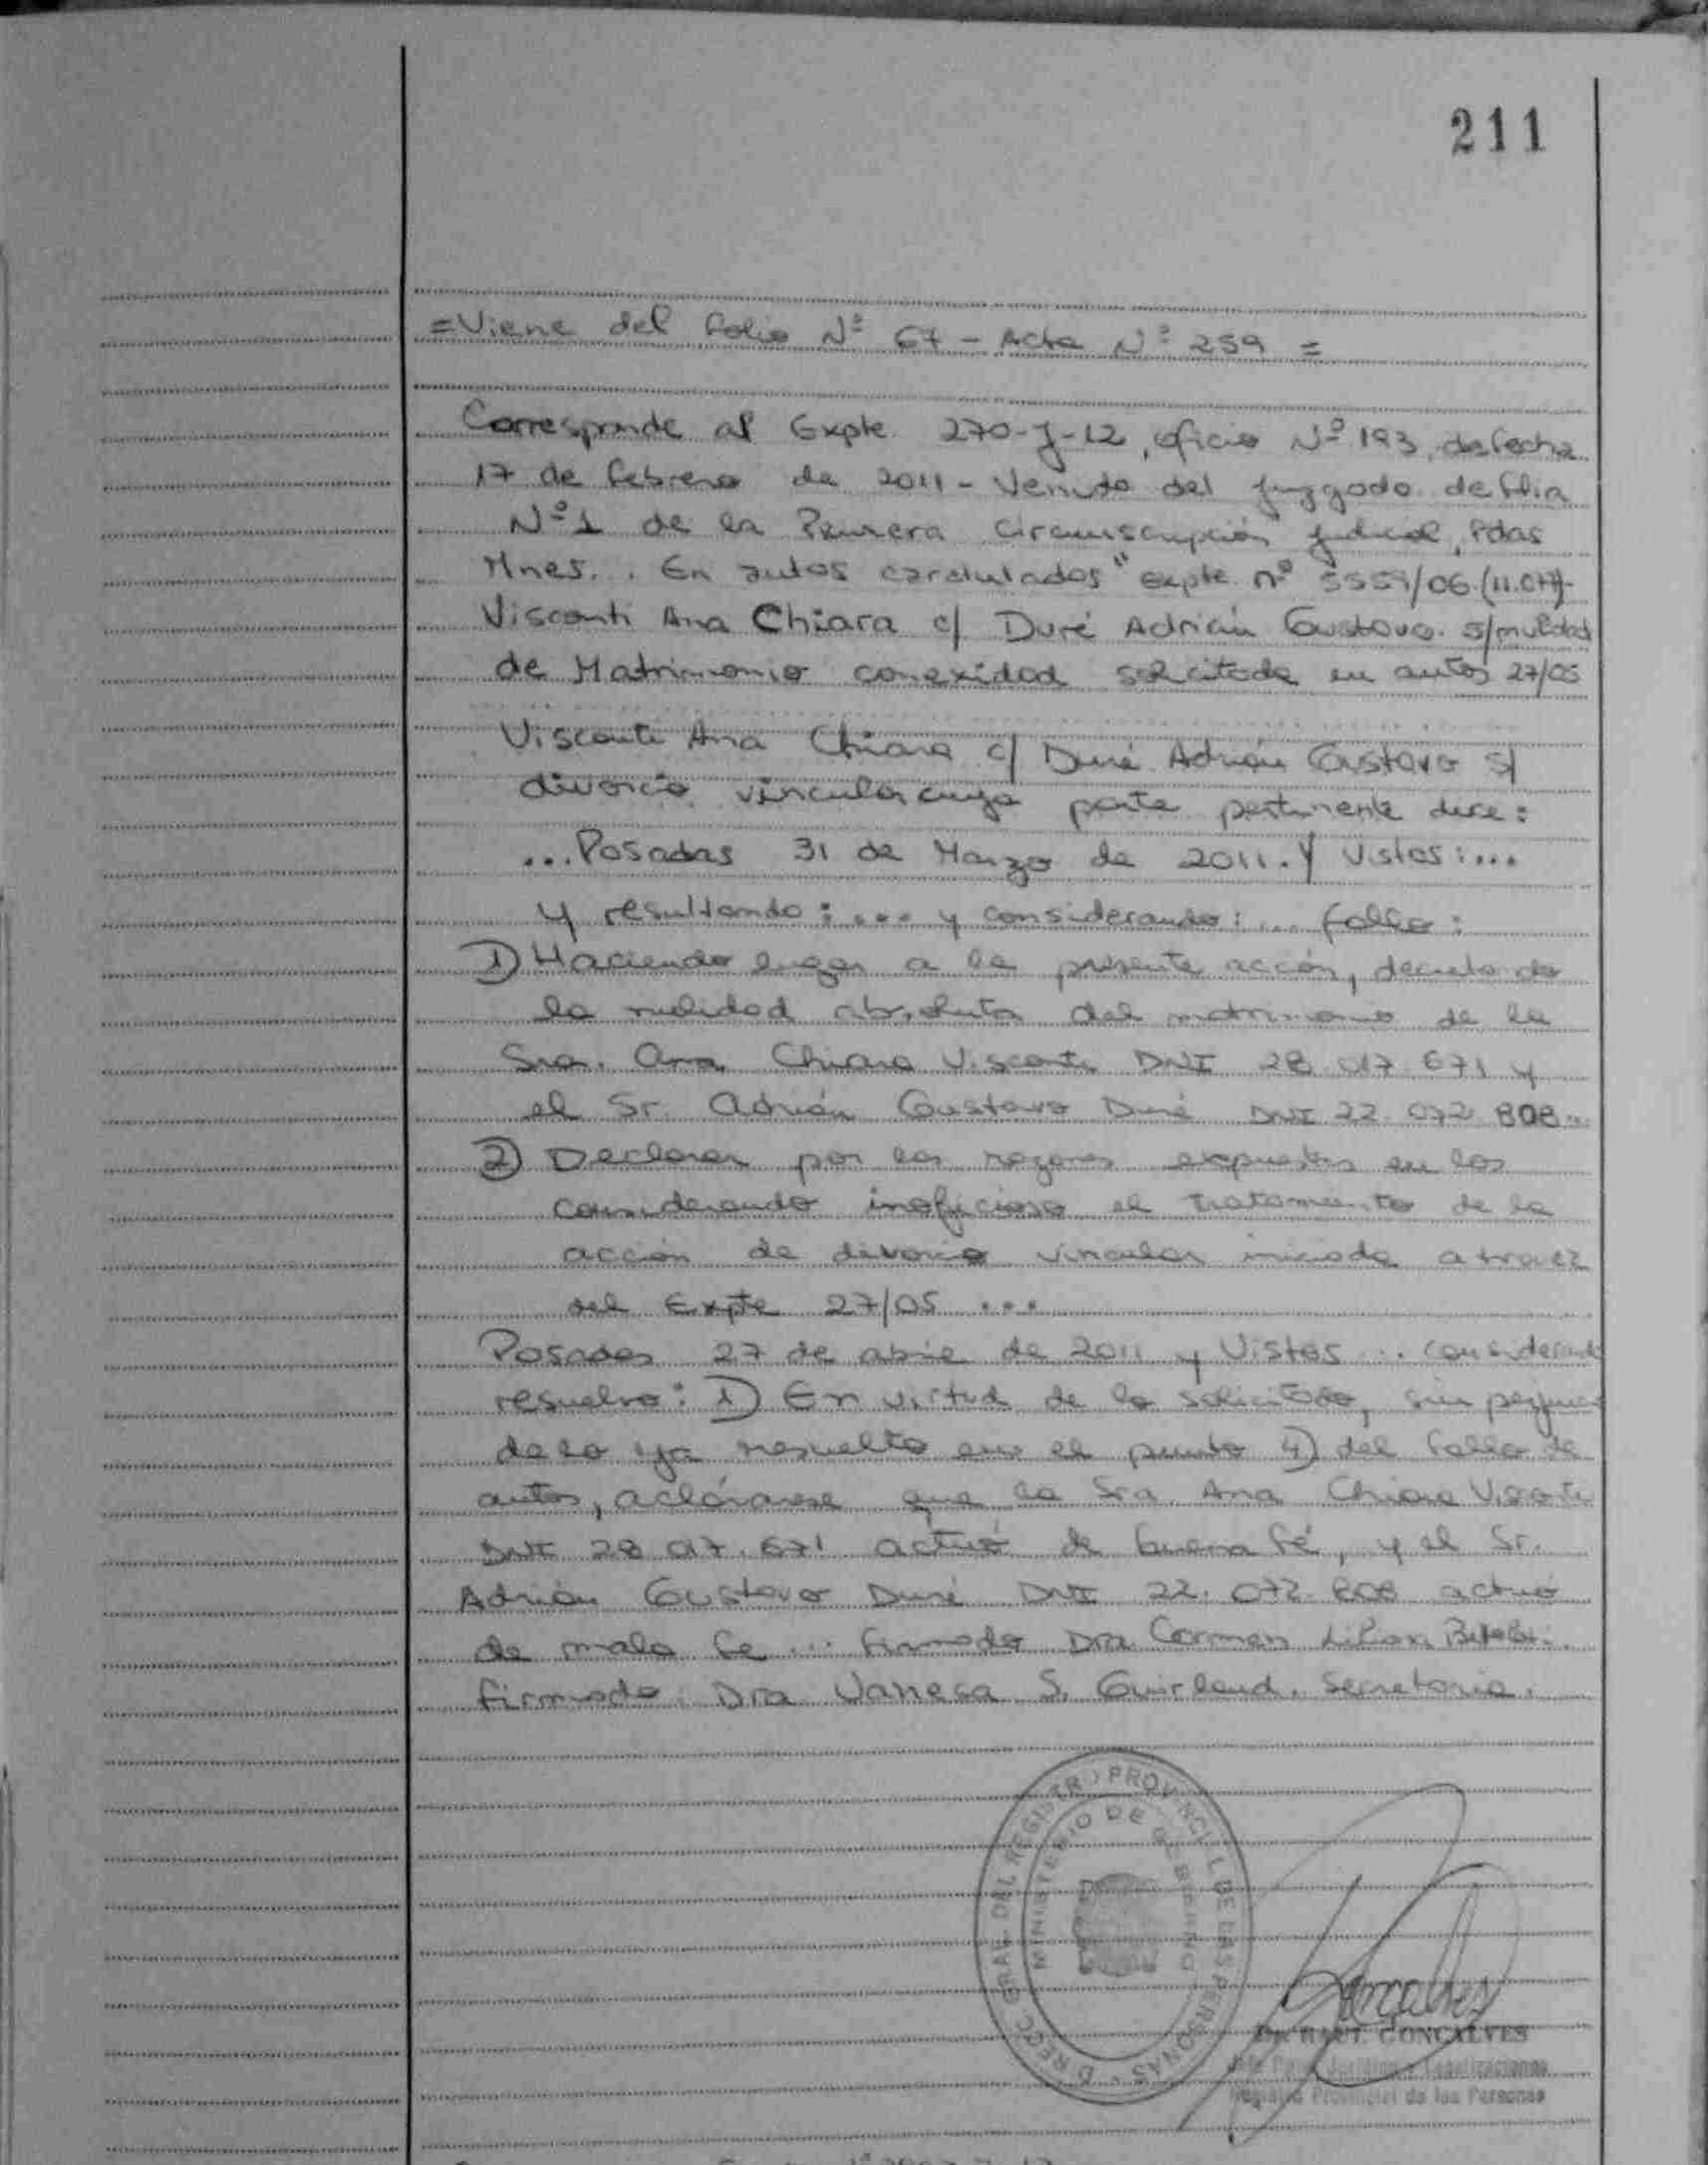 211
=Viene del folio Nº 67 - Acta Nº 259 =
Corresponde al Expte. 270-J-12, oficio Nº 193, de fecha
17 de febrero de 2011 - Venido del Juzgado de Flia
Nº 1 de la Primera Circunscripción Judicial, Pdas
Mnes... En autos caratulados "Expte nº 5559/06
Visconti Ana Chiara c/ Duré Adrián Gustavo s/nulidad
de Matrimonio conexidad solicitada en autos 27/05
Visconti Ana Chiara c/ Duré Adrián Gustavo s/
divorcio vincular cuya parte pertinente dice:
...Posadas 31 de Marzo de 2011. Y Vistos:...
y resultando:.... y considerando:... fallo:
1) Haciendo lugar a la presente acción, decretando
la nulidad absoluta del matrimonio de la
Sra. Ana Chiara Visconti DNI 28.017.671 y
el Sr. Adrián Gustavo Duré DNI 22.072.808...
2) Declarar por las razones expuestas en los
considerando inoficioso el tratamiento de la
acción de divorcio vincular iniciada a travez
del Expte 27/05 ...
Posadas 27 de abril de 2011 y Vistos... considerando
resuelvo: 1) En virtud de lo solicitado, sin
de lo ya resuelto en el punto 4) del fallo de
autos, aclárase que la Sra. Ana Chiara Visconti
DNI 28.017.671 actuó de buena fé, y el Sr.
Adrián Gustavo Duré DNI 22.072.808 actuó
de mala fe... firmado Dra Carmen
firmado Dra Vanesa S. Guirland. Secretaria.
DIRECC. GRAL. DEL REGISTRO PROVINCIAL DE LAS PERSONAS
MINISTERIO DE GOBIERNO
GONCALVES
Registro Provincial de las Personas